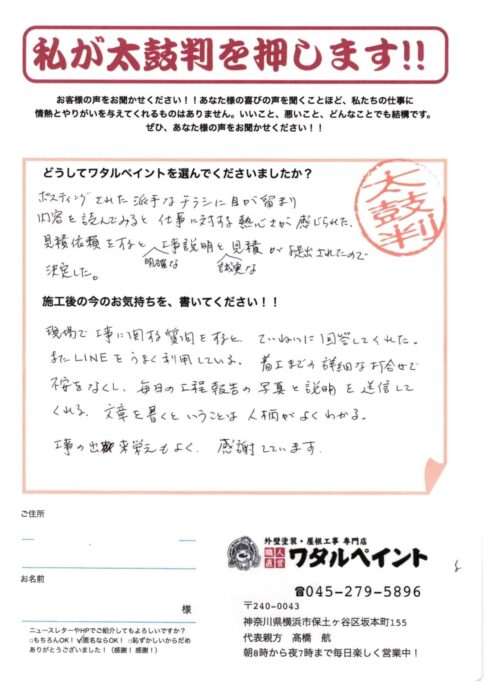 私が太鼓判を押します!!
お客様の声をお聞かせください！！あなた様の喜びの声を聞くことほど、私たちの仕事に
情熱とやりがいを与えてくれるものはありません。いいこと、悪いこと、どんなことでも結構です。
ぜひ、あなた様の声をお聞かせください！！
どうしてワタルペイントを選んでくださいましたか？
太鼓判
ポスティングされた派手なチラシに目が留まり
内容を読んでみると仕事に対する熱心さが感じられた。
見積依頼をすると工事説明と見積が提出されたので
明確な 誠実な
決定した。
施工後の今のお気持ちを、書いてください！！
現場で工事に関する質問をすると、ていねいに回答してくれた。
またLINEをうまく利用している。着工までの詳細な打合せで
不安をなくし、毎日の工程報告の写真と説明を送信して
くれる。文章を書くということは人柄がよくわかる。
工事の出来栄えもよく、感謝しています。
ご住所
お名前
様
ニュースレターやHPでご紹介してもよろしいですか？
□もちろんOK！ ☑匿名ならOK！ □恥ずかしいからだめ
ありがとうございました！（感謝！感謝！）
外壁塗装・屋根工事 専門店
職人直営 ワタルペイント
☎045-279-5896
〒240-0043
神奈川県横浜市保土ヶ谷区坂本町155
代表親方 高橋 航
朝8時から夜7時まで毎日楽しく営業中！